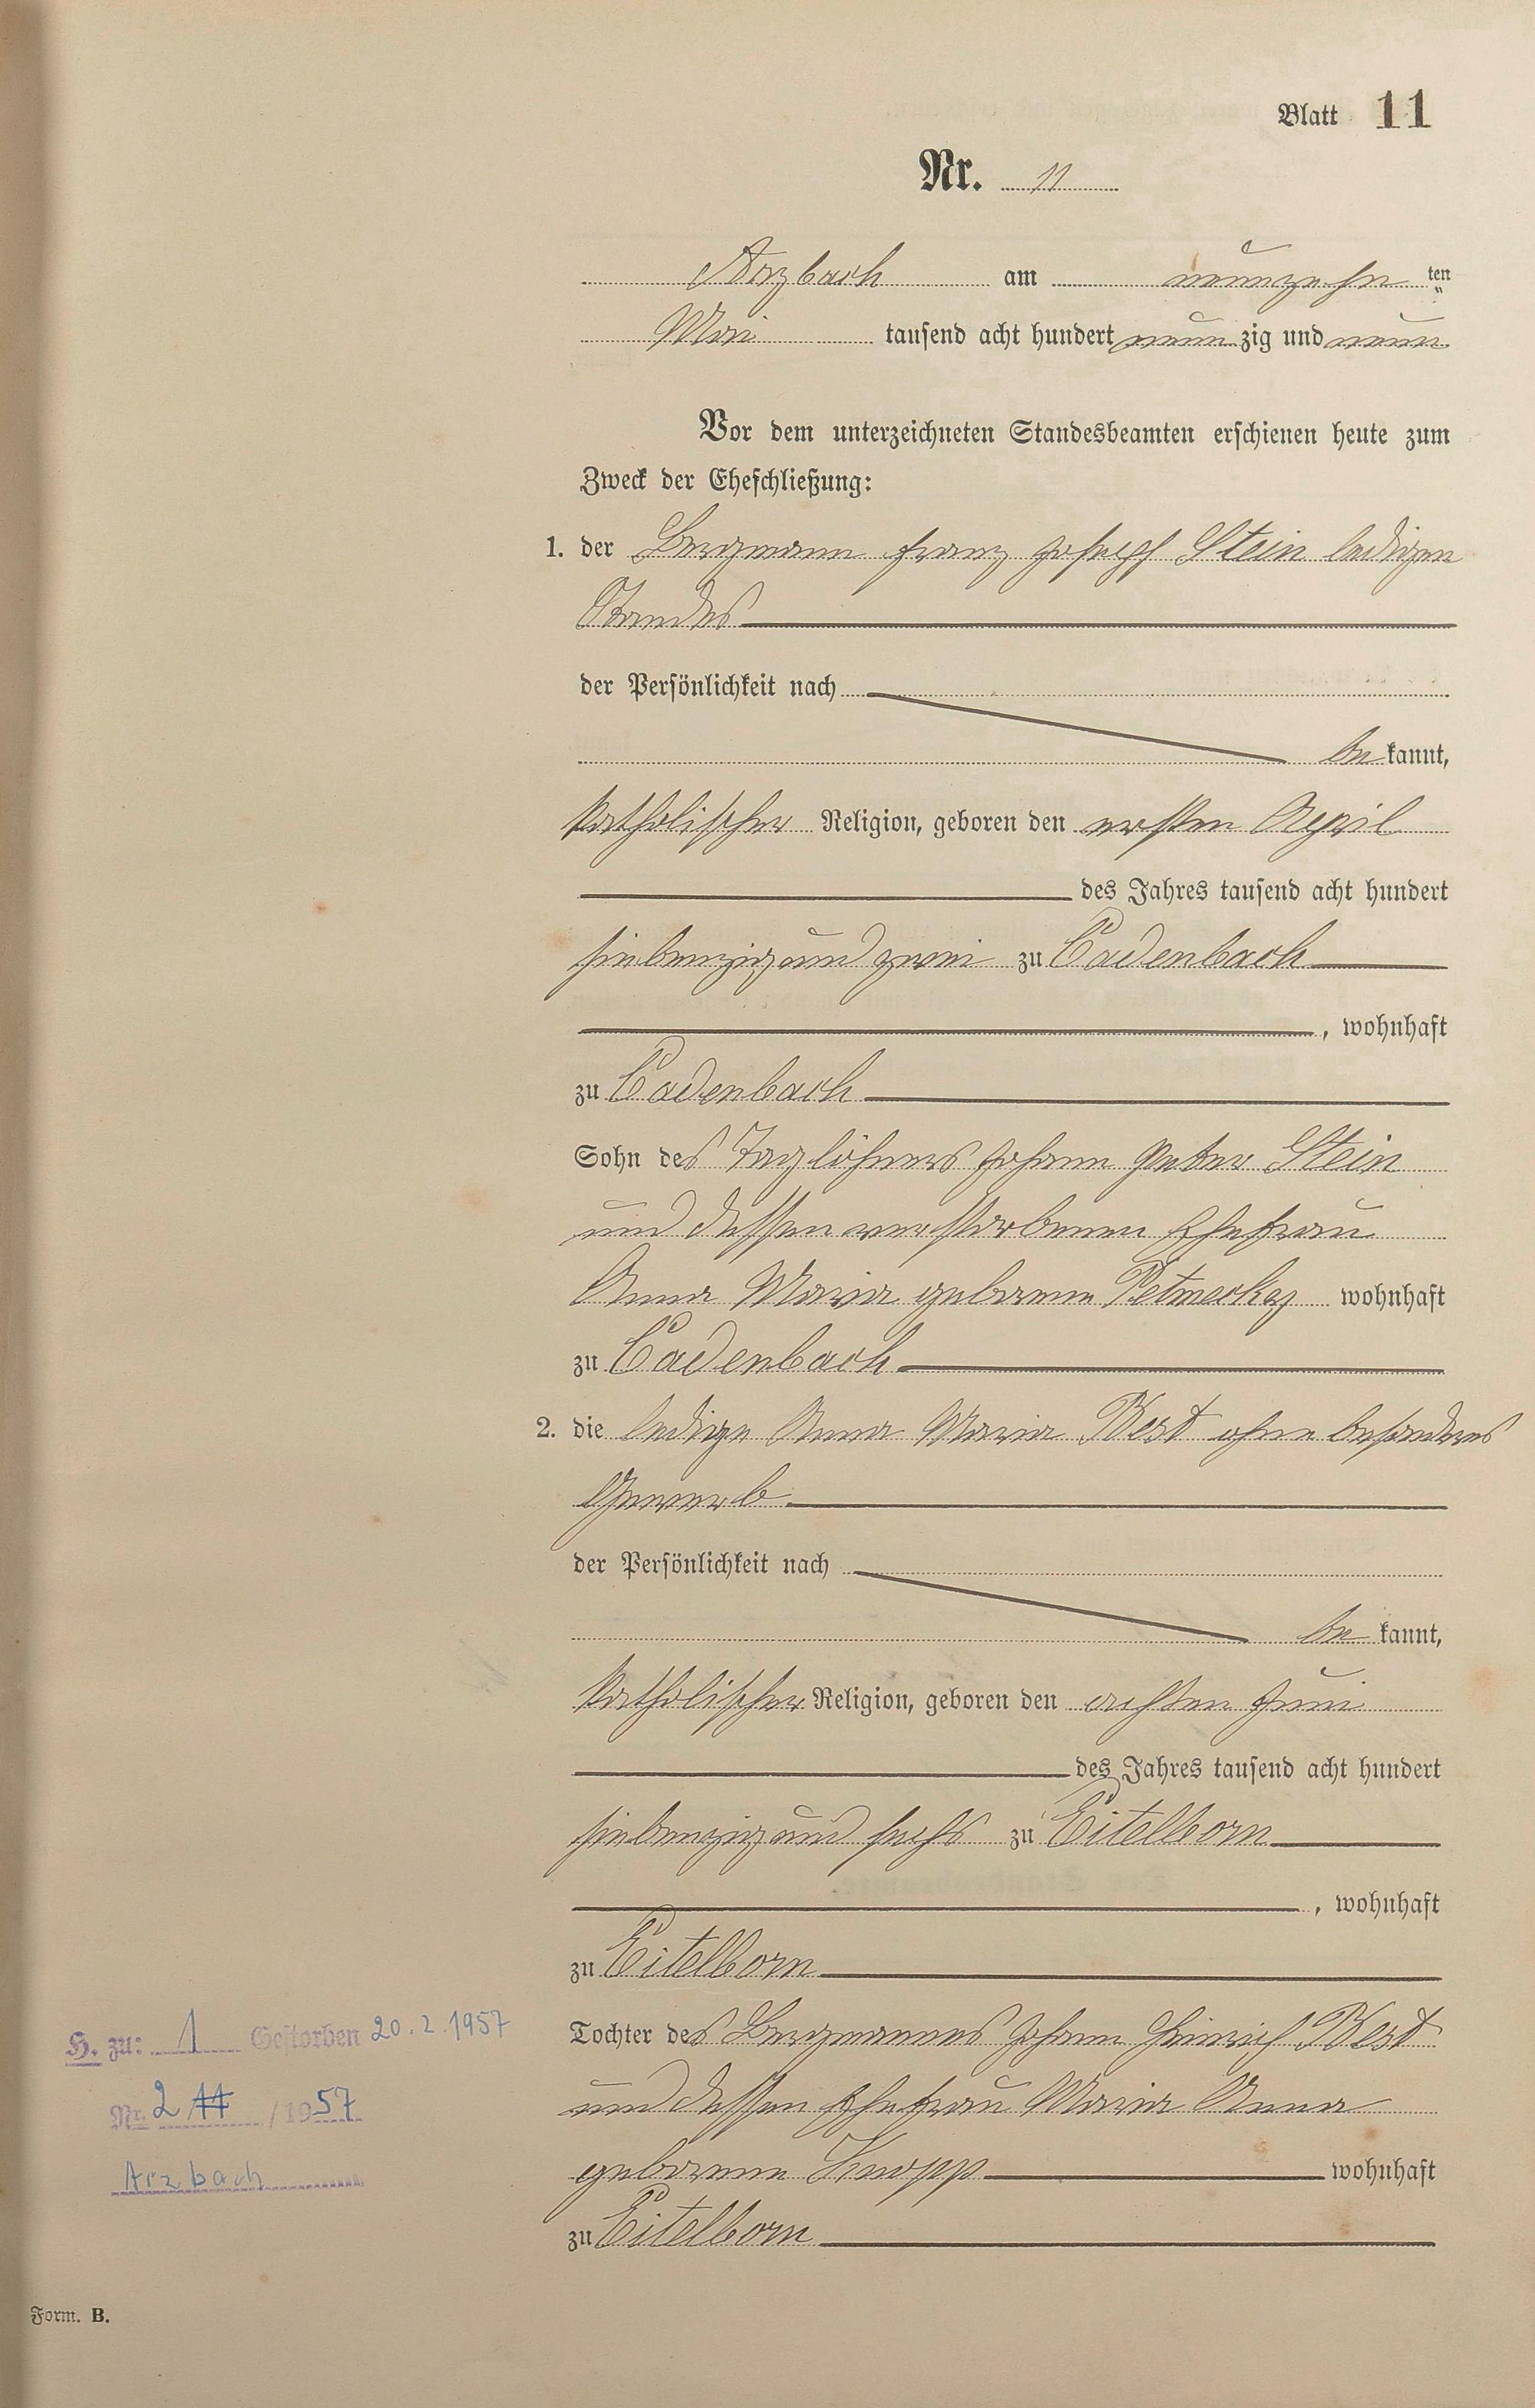 Blatt 11
Nr. 11
Arzbach am neunzehn ten
Mai tausend acht hundert neun zig und neun
Vor dem unterzeichneten Standesbeamten erschienen heute zum
Zweck der Eheschließung:
1. der Bergmann Franz Joseph Stein ledigen
Standes
der Persönlichkeit nach
be kannt,
katholischer Religion, geboren den ersten April
des Jahres tausend acht hundert
siebenzig und zwei zu Cadenbach
, wohnhaft
zu Cadenbach
Sohn des Taglöhners Johann Peter Stein
und dessen verstorbenen Ehefrau
Anna Maria geborene Petmecky wohnhaft
zu Cadenbach
2. die ledige Anna Maria Best ohne besonderes
Gewerb
der Persönlichkeit nach
be kannt,
katholischer Religion, geboren den achten Juni
des Jahres tausend acht hundert
siebenzig und sechs zu Eitelborn
, wohnhaft
zu Eitelborn
Tochter des Bergmannes Johann Heinrich Best
und dessen Ehefrau Maria Anna
geborene Knopp wohnhaft
zu Eitelborn
H. zu: 1 Gestorben 20.2.1957
Nr. 2 /1957
Arzbach
Form. B.